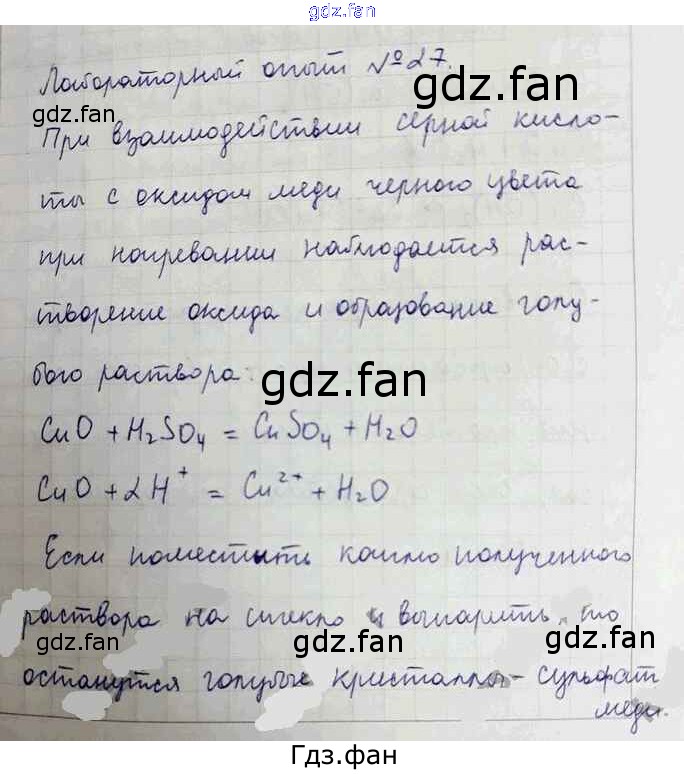 gdz.fan
Лабораторный опыт №27.
gdz.fan
gdz.fan
При взаимодействии серной кисло-
ты с оксидом меди черного цвета
при нагревании наблюдается рас-
gdz.fan
gdz.fan
творение оксида и образование голу-
бого раствора:
gdz.fan
CuO + H₂SO₄ = CuSO₄ + H₂O
CuO + 2H⁺ = Cu²⁺ + H₂O
Если поместить каплю полученного
раствора на стекло и выпарить, то
gdz.fan
gdz.fan
gdz.fan
останутся голубые кристаллы - сульфат
меди.
Гдз.фан